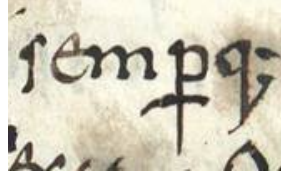 semꝑq;